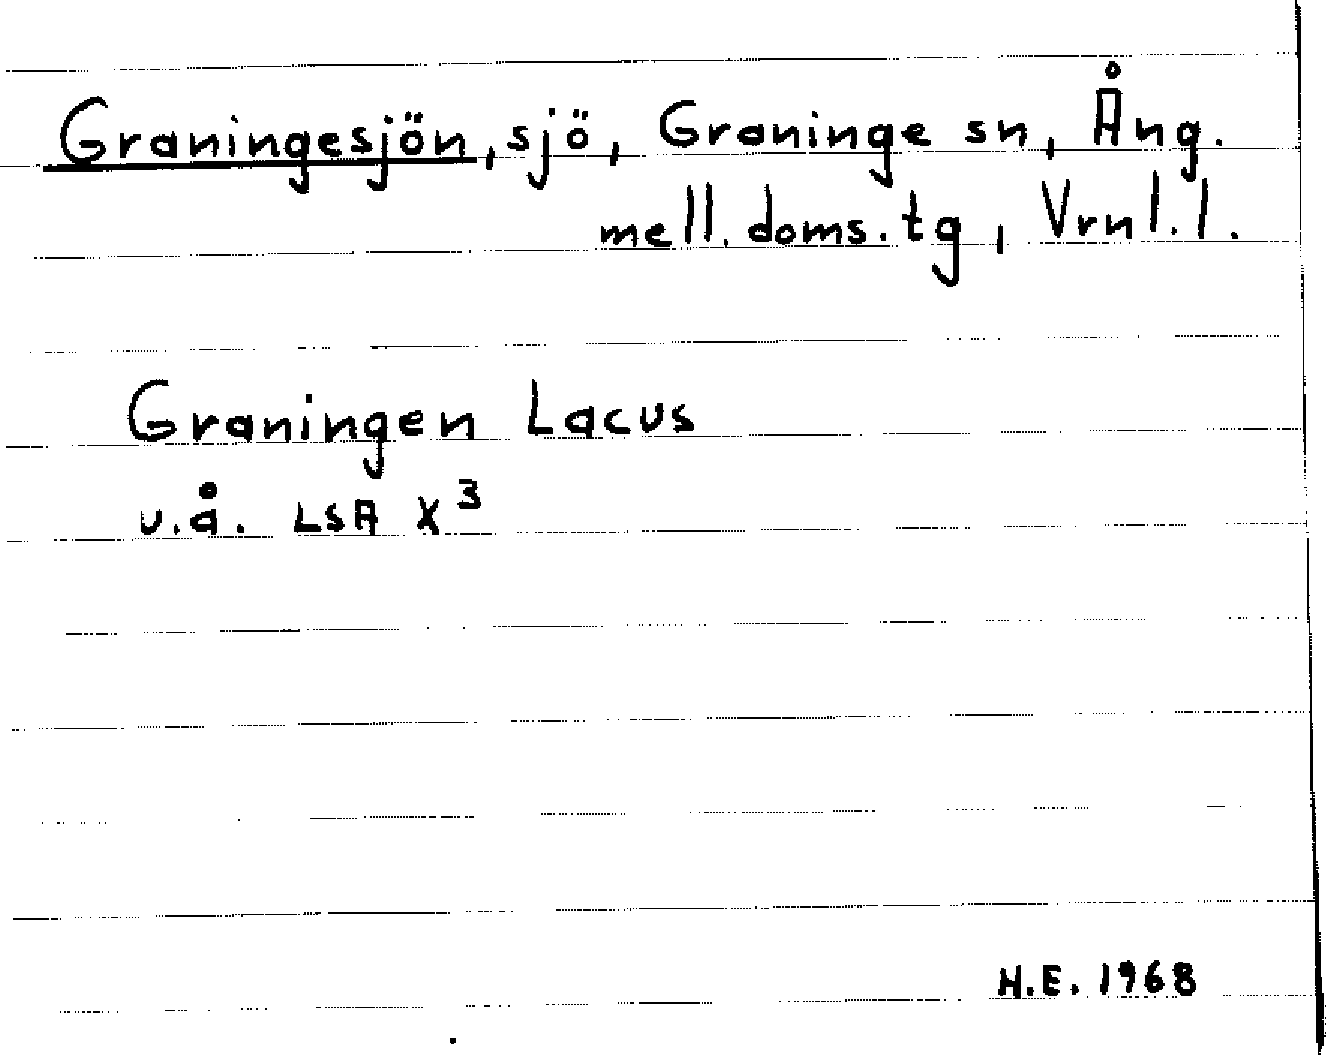 Graningesjön, sjö, Graninge sn, Ång.
mell. doms. tg, Vrnl. l.
Graningen Lacus
u.å. LSA X 3
H.E. 1968